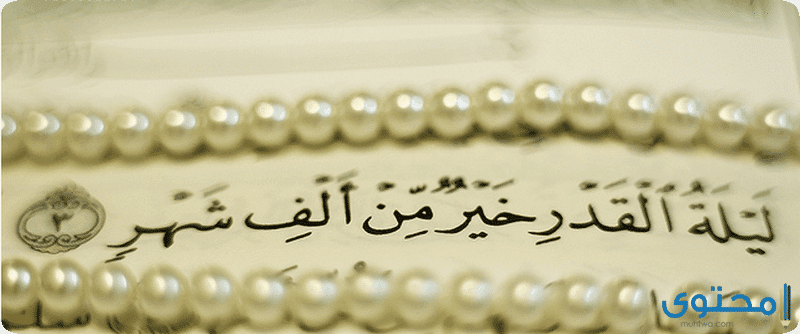 لَيْلَةُ الْقَدْرِ خَيْرٌ مِّنْ أَلْفِ شَهْرٍ ٣
محتوى
muhtwa.com